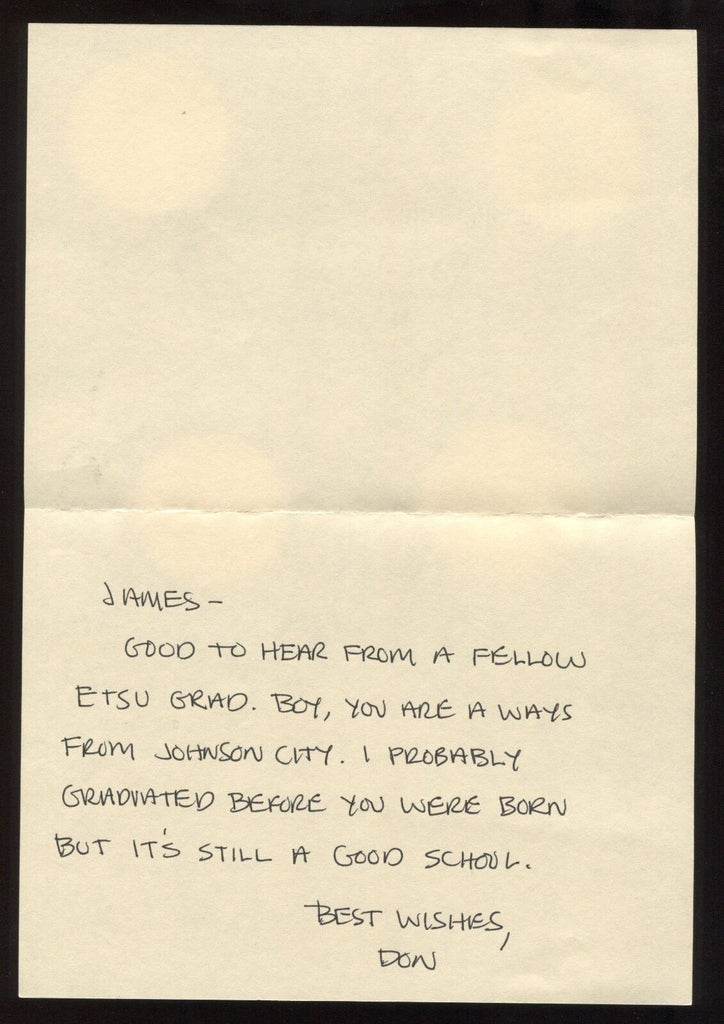 JAMES –
GOOD TO HEAR FROM A FELLOW
ETSU GRAD. BOY, YOU ARE A WAYS
FROM JOHNSON CITY. I PROBABLY
GRADUATED BEFORE YOU WERE BORN
BUT IT'S STILL A GOOD SCHOOL.
BEST WISHES,
DON